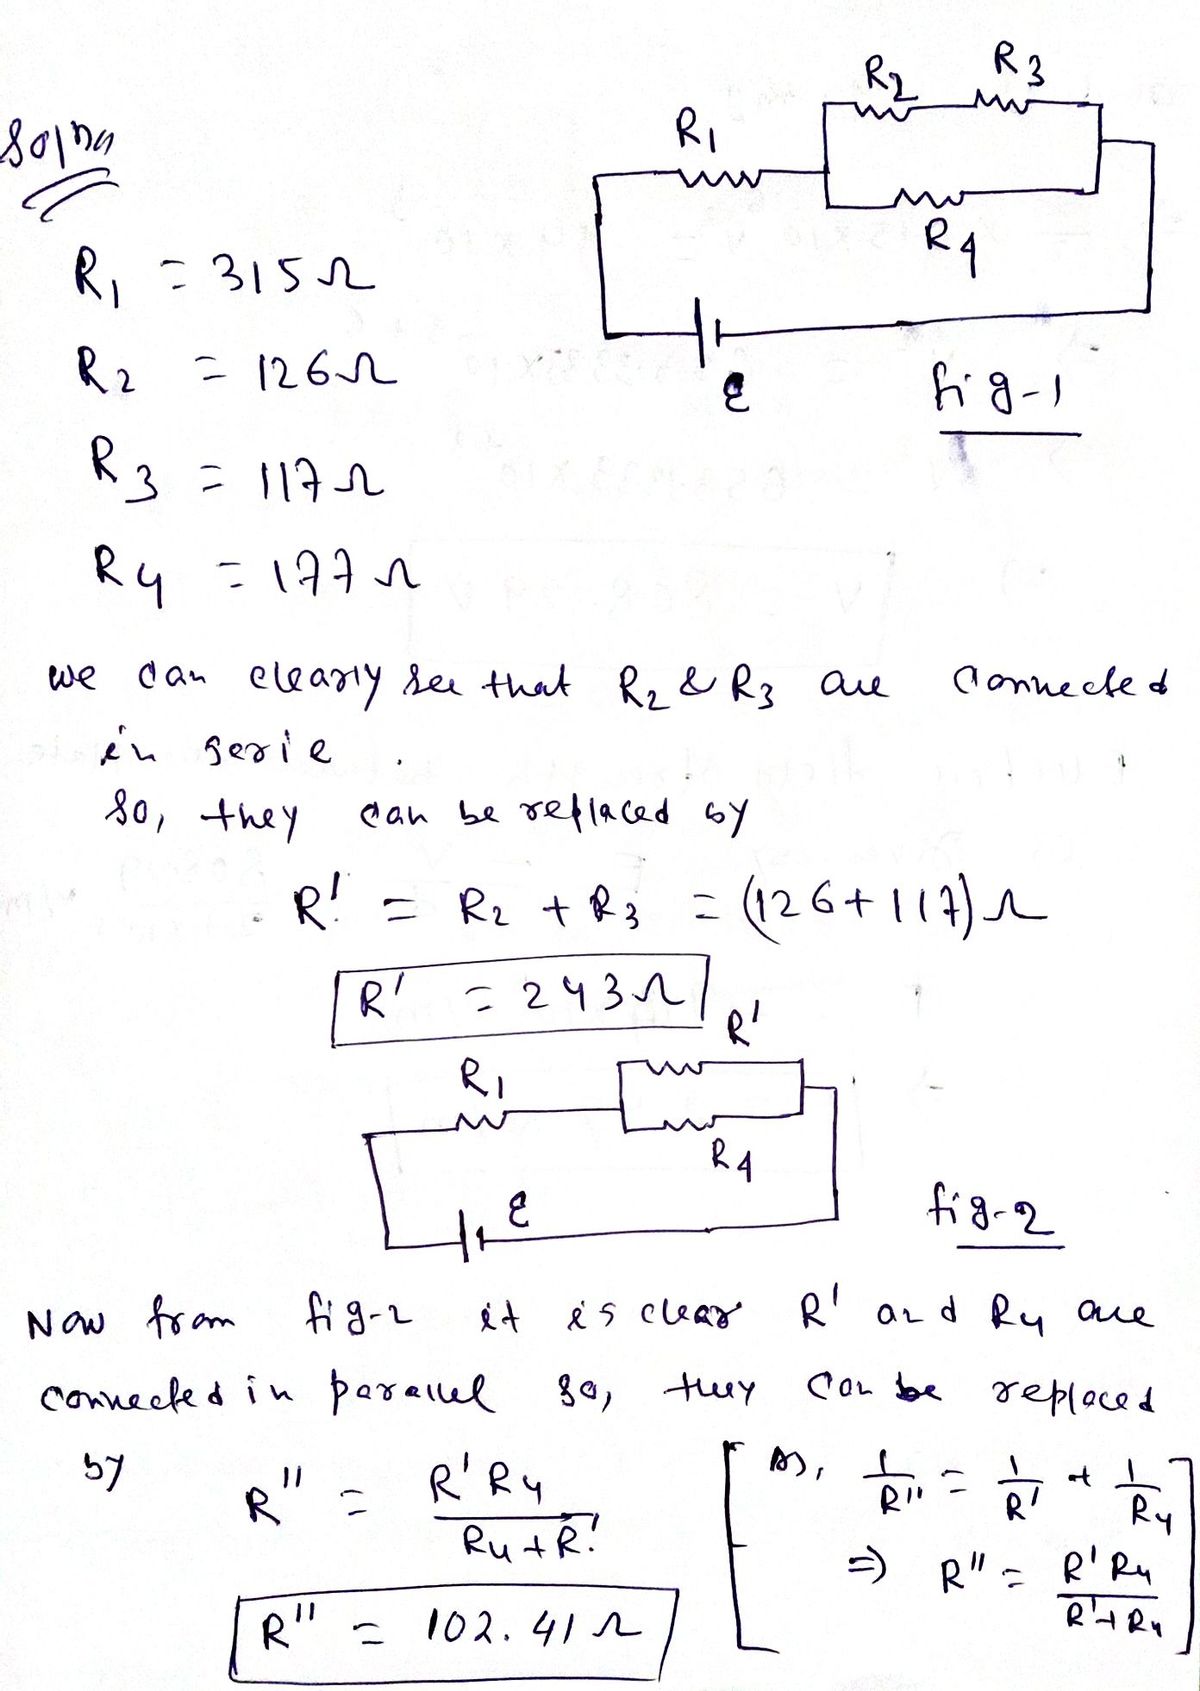 R2 R3
Soln
R1
R4
R1 = 315Ω
R2 = 126Ω
ε
fig-1
R3 = 117Ω
R4 = 177Ω
we can clearly see that R2 & R3 are connected
in serie .
So, they can be replaced by
R' = R2 + R3 = (126+117)Ω
R' = 243Ω
R'
R1
R4
ε
fig-2
Now from fig-2 it is clear R' and R4 are
connected in parallel so, they can be replaced
by R'' = R'R4 / R4+R'
As, 1/R'' = 1/R' + 1/R4
=) R'' = R'R4 / R'+R4
R'' = 102.41Ω